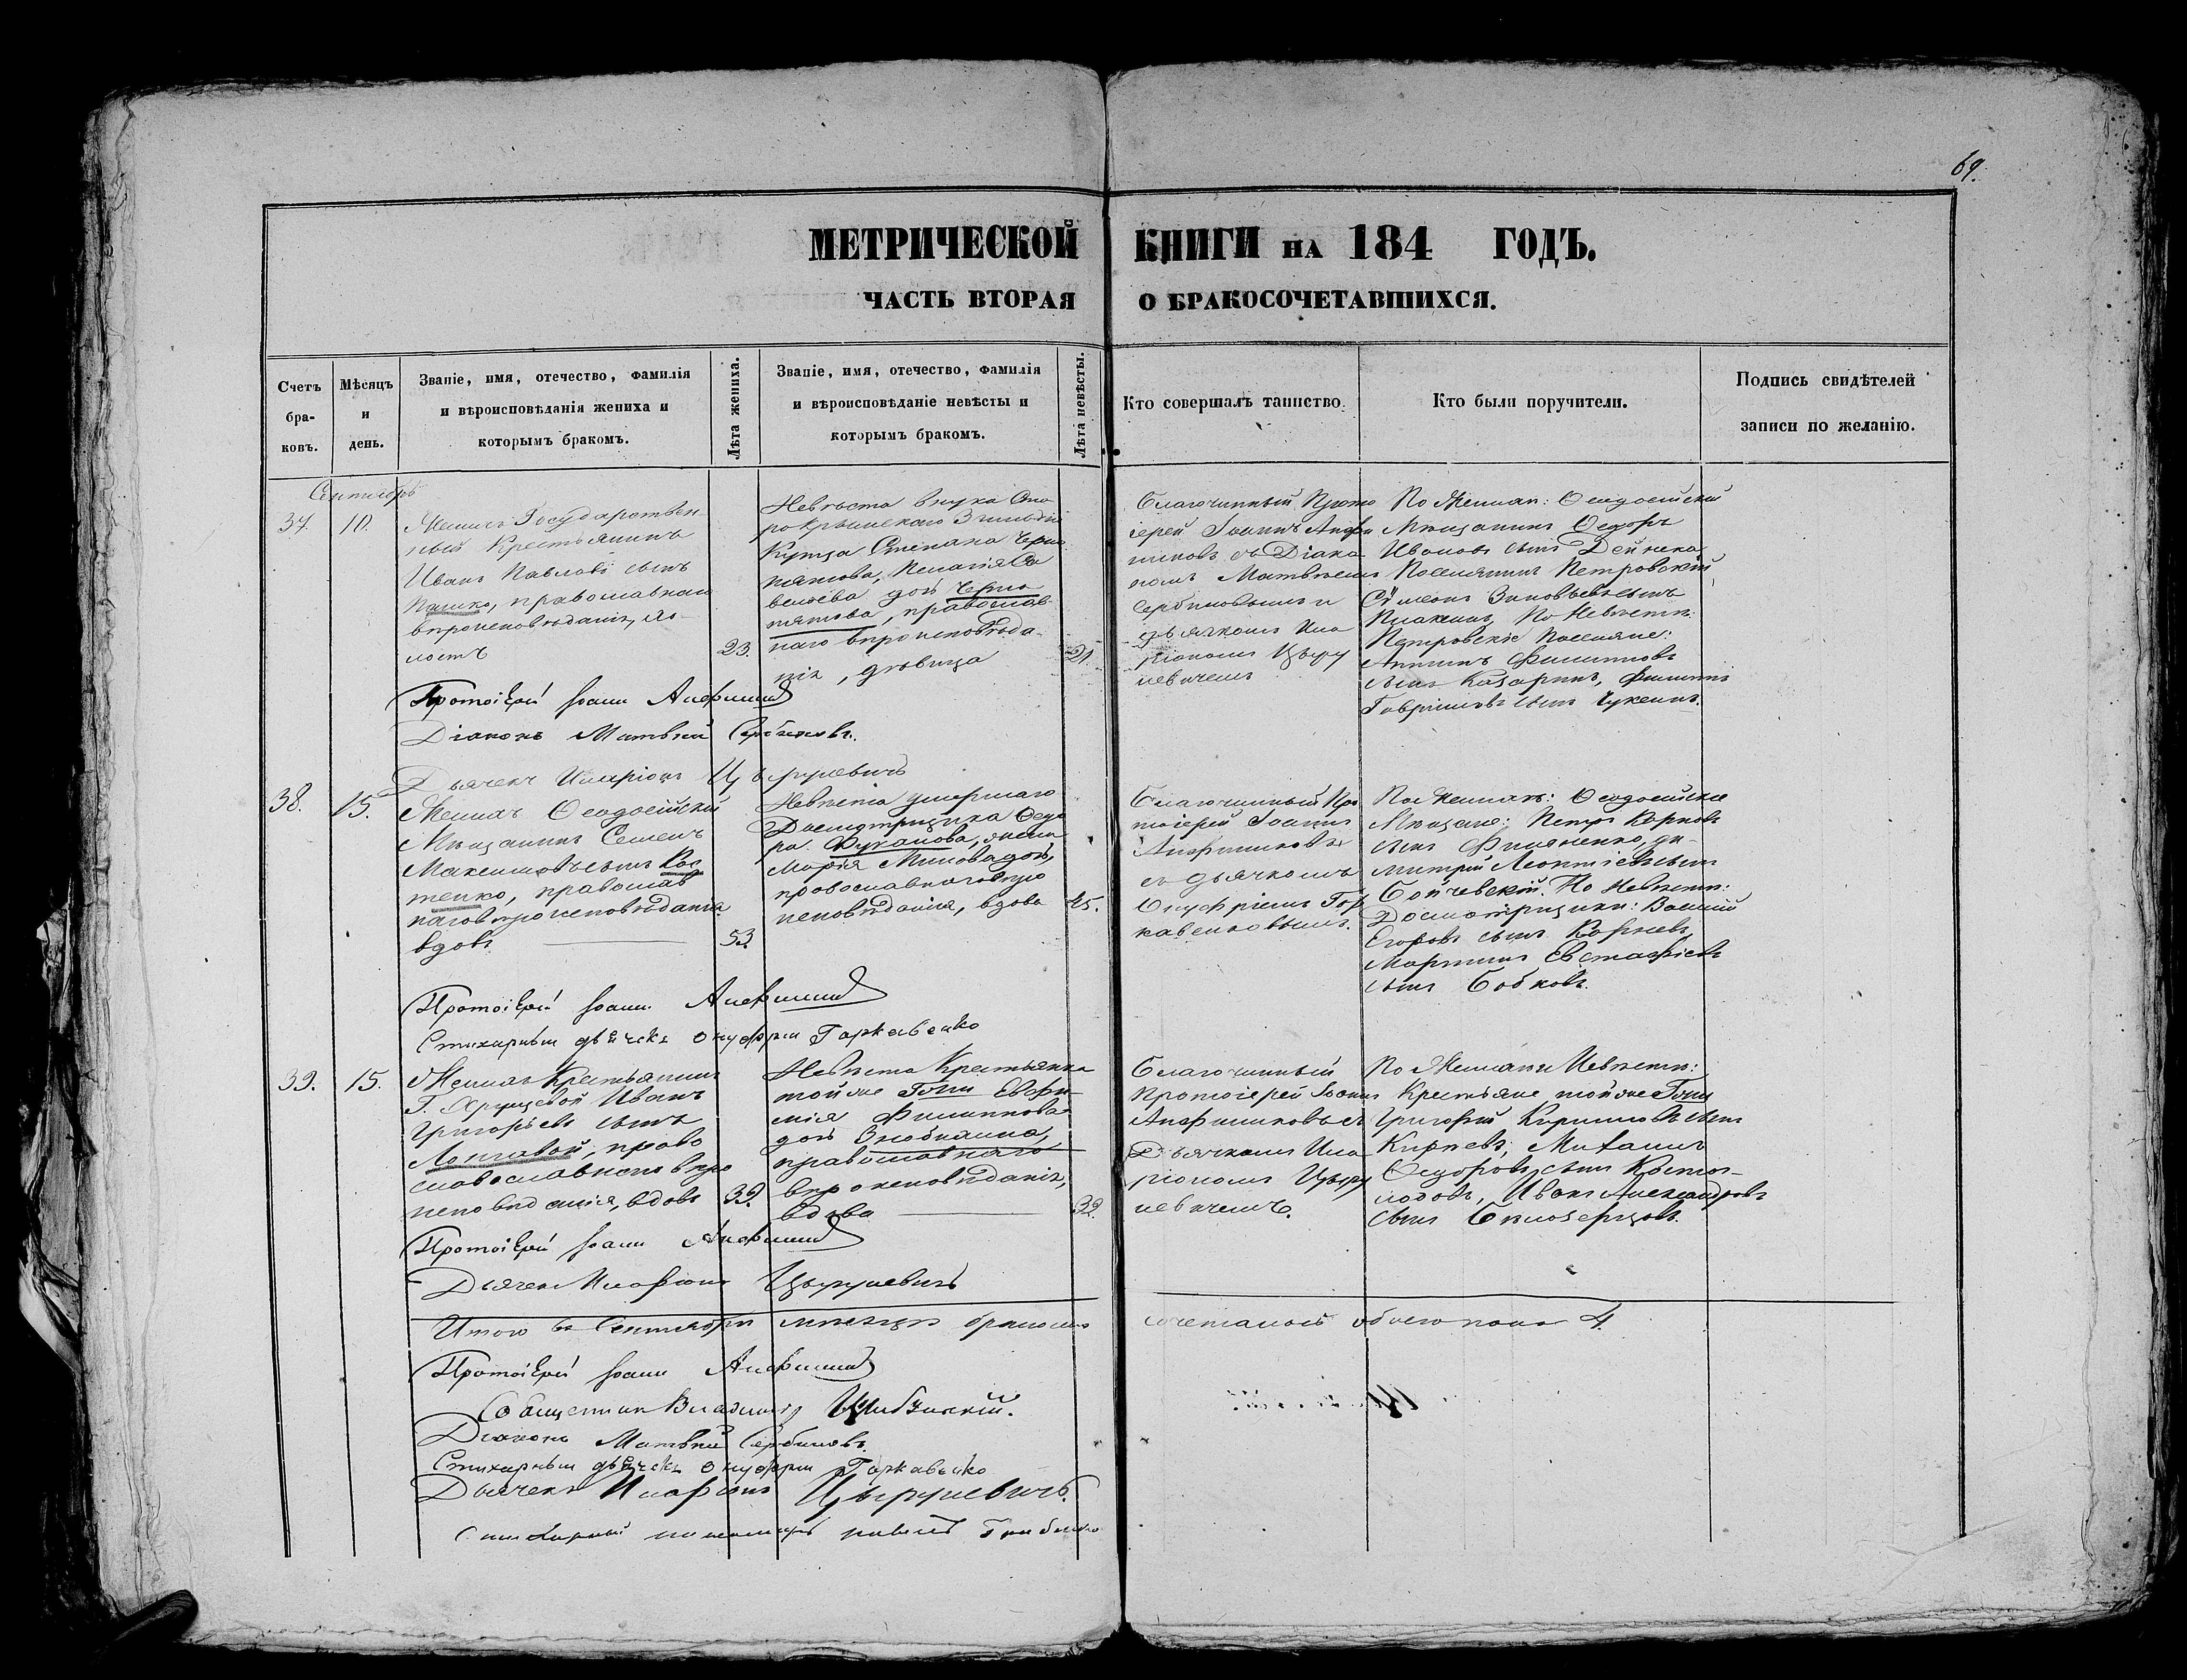 69.
МЕТРИЧЕСКОЙ КНИГИ НА 184 ГОДЪ.
ЧАСТЬ ВТОРАЯ О БРАКОСОЧЕТАВШИХСЯ.
Счетъ
бра-
ковъ.
Мѣсяцъ
и
день.
Званіе, имя, отечество, фамилія
и вѣроисповѣданія жениха и
которымъ бракомъ.
Лѣта жениха.
Званіе, имя, отечество, фамилія
и вѣроисповѣданіе невѣсты и
которымъ бракомъ.
Лѣта невѣсты.
Кто совершалъ таинство.
Кто были поручители.
Подпись свидѣтелей
записи по желанію.
Сентябрь
37. 10.
Женихъ Государствен-
ный Крестьянинъ
Иванъ Павловъ сынъ
Пашко, православнаго
вѣроисповѣданія, хо-
лостъ
23.
Невѣста внука Ста
рокрымскаго 3 гильдіи
Купца Степана Черно
пятова, Пелагія Са
вельева дочь Черно
пятова, православ
наго вѣроисповѣда-
нія, дѣвица
21.
Благочинный Прото
іерей Іоаннъ Анфи
никовъ съ Діако
номъ Матвѣемъ
Сербиновымъ и
дьячкомъ Ила
ріономъ Цыру
левичемъ
По Женихѣ: Ѳеодосійскій
Мѣщанинъ Ѳедоръ
Ивановъ сынъ Дейнека
Поселянинъ Петровскій
Сѵмеонъ Зиновьевъ сынъ
По Невѣстѣ:
Петровскіе Поселяне:
Филипповъ
сынъ Казаринъ, Филиппъ
Гавриловъ сынъ Чукинъ.
Протоіерей Іоаннъ
Діаконъ Матвѣй Сербиновъ.
Дьячекъ Иларіонъ Цырулевичъ
38. 15.
Женихъ Ѳеодосійскій
Мѣщанинъ Семенъ
Максимовъ сынъ Кос
тенко, православ
наго вѣроисповѣданія
вдовъ
53.
Невѣста умершаго
Досмотрщика Ѳедо
ра Дуканова, жена
Марія Минова дочь,
православнаго вѣро
исповѣданія, вдова
45.
Благочинный Про
тоіерей Іоаннъ
Анфиниковъ
съ дьячкомъ
Онуфріемъ Гор
кавенковымъ.
По Женихѣ: Ѳеодосійскіе
Мѣщане: Петръ Карповъ
сынъ Филоненко, Ди-
митрій Леонтіевъ сынъ
Бойчевскій. По Невѣстѣ:
Досмотрщики: Василій
Егоровъ сынъ Корневъ,
Мартинъ Евстафіевъ
сынъ Бобковъ.
Протоіерей Іоаннъ
Стихарный дьячекъ Онуфрій Горкавенко
39. 15.
Женихъ Крестьянинъ
Г. Иванъ
Григорьевъ сынъ
Лонгавой, право
славнаго вѣро
исповѣданія, вдовъ
39.
Невѣста Крестьянка
той же Гжи Евфи-
мія Филиппова
дочь Знобишина,
православнаго
вѣроисповѣданія,
вдова
32.
Благочинный
Протоіерей Іоаннъ
Анфиниковъ съ
Дьячкомъ Ила
ріономъ Цыру
левичемъ.
По Женихѣ и Невѣстѣ:
Крестьяне той же Гжи
Григорій Кириловъ сынъ
Кирѣевъ, Михаилъ
Ѳедоровъ сынъ Космо-
Иванъ Александровъ
сынъ Бѣлозерцовъ.
Протоіерей Іоаннъ
Дьячекъ Иларіонъ Цырулевичъ
Итого въ Сентябрѣ мѣсяцѣ бракомъ сочеталось обоего пола 4.
Протоіерей Іоаннъ
Священникъ Владимір
Діаконъ Матвѣй Сербиновъ.
Стихарный дьячекъ Онуфрій Горкавенко
Дьячекъ Иларіонъ Цырулевичъ.
Стихарный пономарь